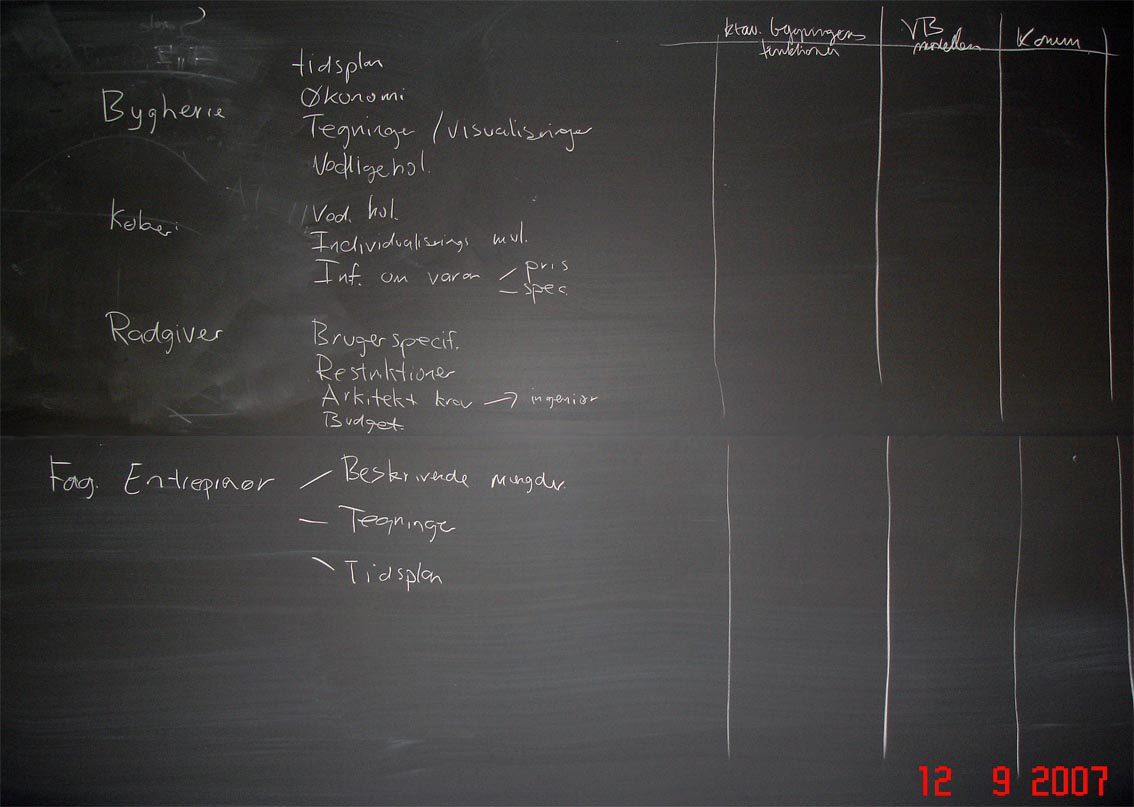 krav. bygningens funktioner
VB modellen
Komm
tidsplan
Bygherre
Økonomi
Tegninger / visualiseringer
Vedligehol.
Køber
Ved. hol.
Individualiserings mul.
Inf. om varen
pris
spec.
Radgiver
Bruger specif.
Restriktioner
Arkitekt krav → ingeniør
Budget
Fag. Entreprenør
Beskrivende mængder.
Tegninge
Tidsplan
12 9 2007